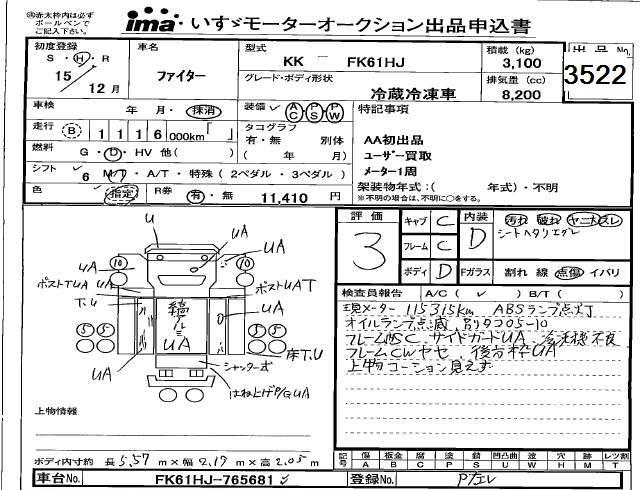 ㊟赤太枠内は必ず
ボールペンで
ご記入下さい。
ima いすゞモーターオークション出品申込書
初度登録
S・H・R
15年
12月
車名
ファイター
型式
KK － FK61HJ
グレード・ボディ形状
冷蔵冷凍車
積載 (kg)
3,100
排気量 (cc)
8,200
出品No.
3522
車検 年・月・抹消
走行 B 1 1 1 6 000km「 」
燃料 G・D・HV 他( )
シフト 6 M/T・A/T・特殊 (2ペダル・3ペダル)
色 指定
R券 有・無 11,410 円
装備 AC PS PW
タコグラフ
有・無 別体
( 年 月)
特記事項
AA初出品
ユーザー買取
メーター1周
架装物年式:( 年式)・不明
※不明の場合は、不明に○をする。
評価
3
キャブ C
フレーム C
ボディ D
内装 D
汚れ 破れ ヤニ スレ
シートヘタリエグレ
Fガラス 割れ 線 点傷 イバリ
検査員報告 A/C( ✓ ) B/T( )
現メーター 115315km ABSランプ点灯
オイルランプ点滅、別タコ05-10
サイドガードUA
フレームCWヤセ、後方枠UA
上物コーション見えず
U
UA
UA
10
10
UA
ポストTUA
ポストUAT
UA
T.U
UA
UA
UA
5 5
5 5
床T.U
シャッター
はね上げP/G UA
上物情報
ボディ内寸約 長 5.57 m×幅 2.17 m×高 2.05 m
記号 傷A 板金B 腐C 塗P 錆S 凹U 凸凹曲W 波 穴H 跡M 減 レンズ割T
車台No. FK61HJ-765681 ✓
登録No.